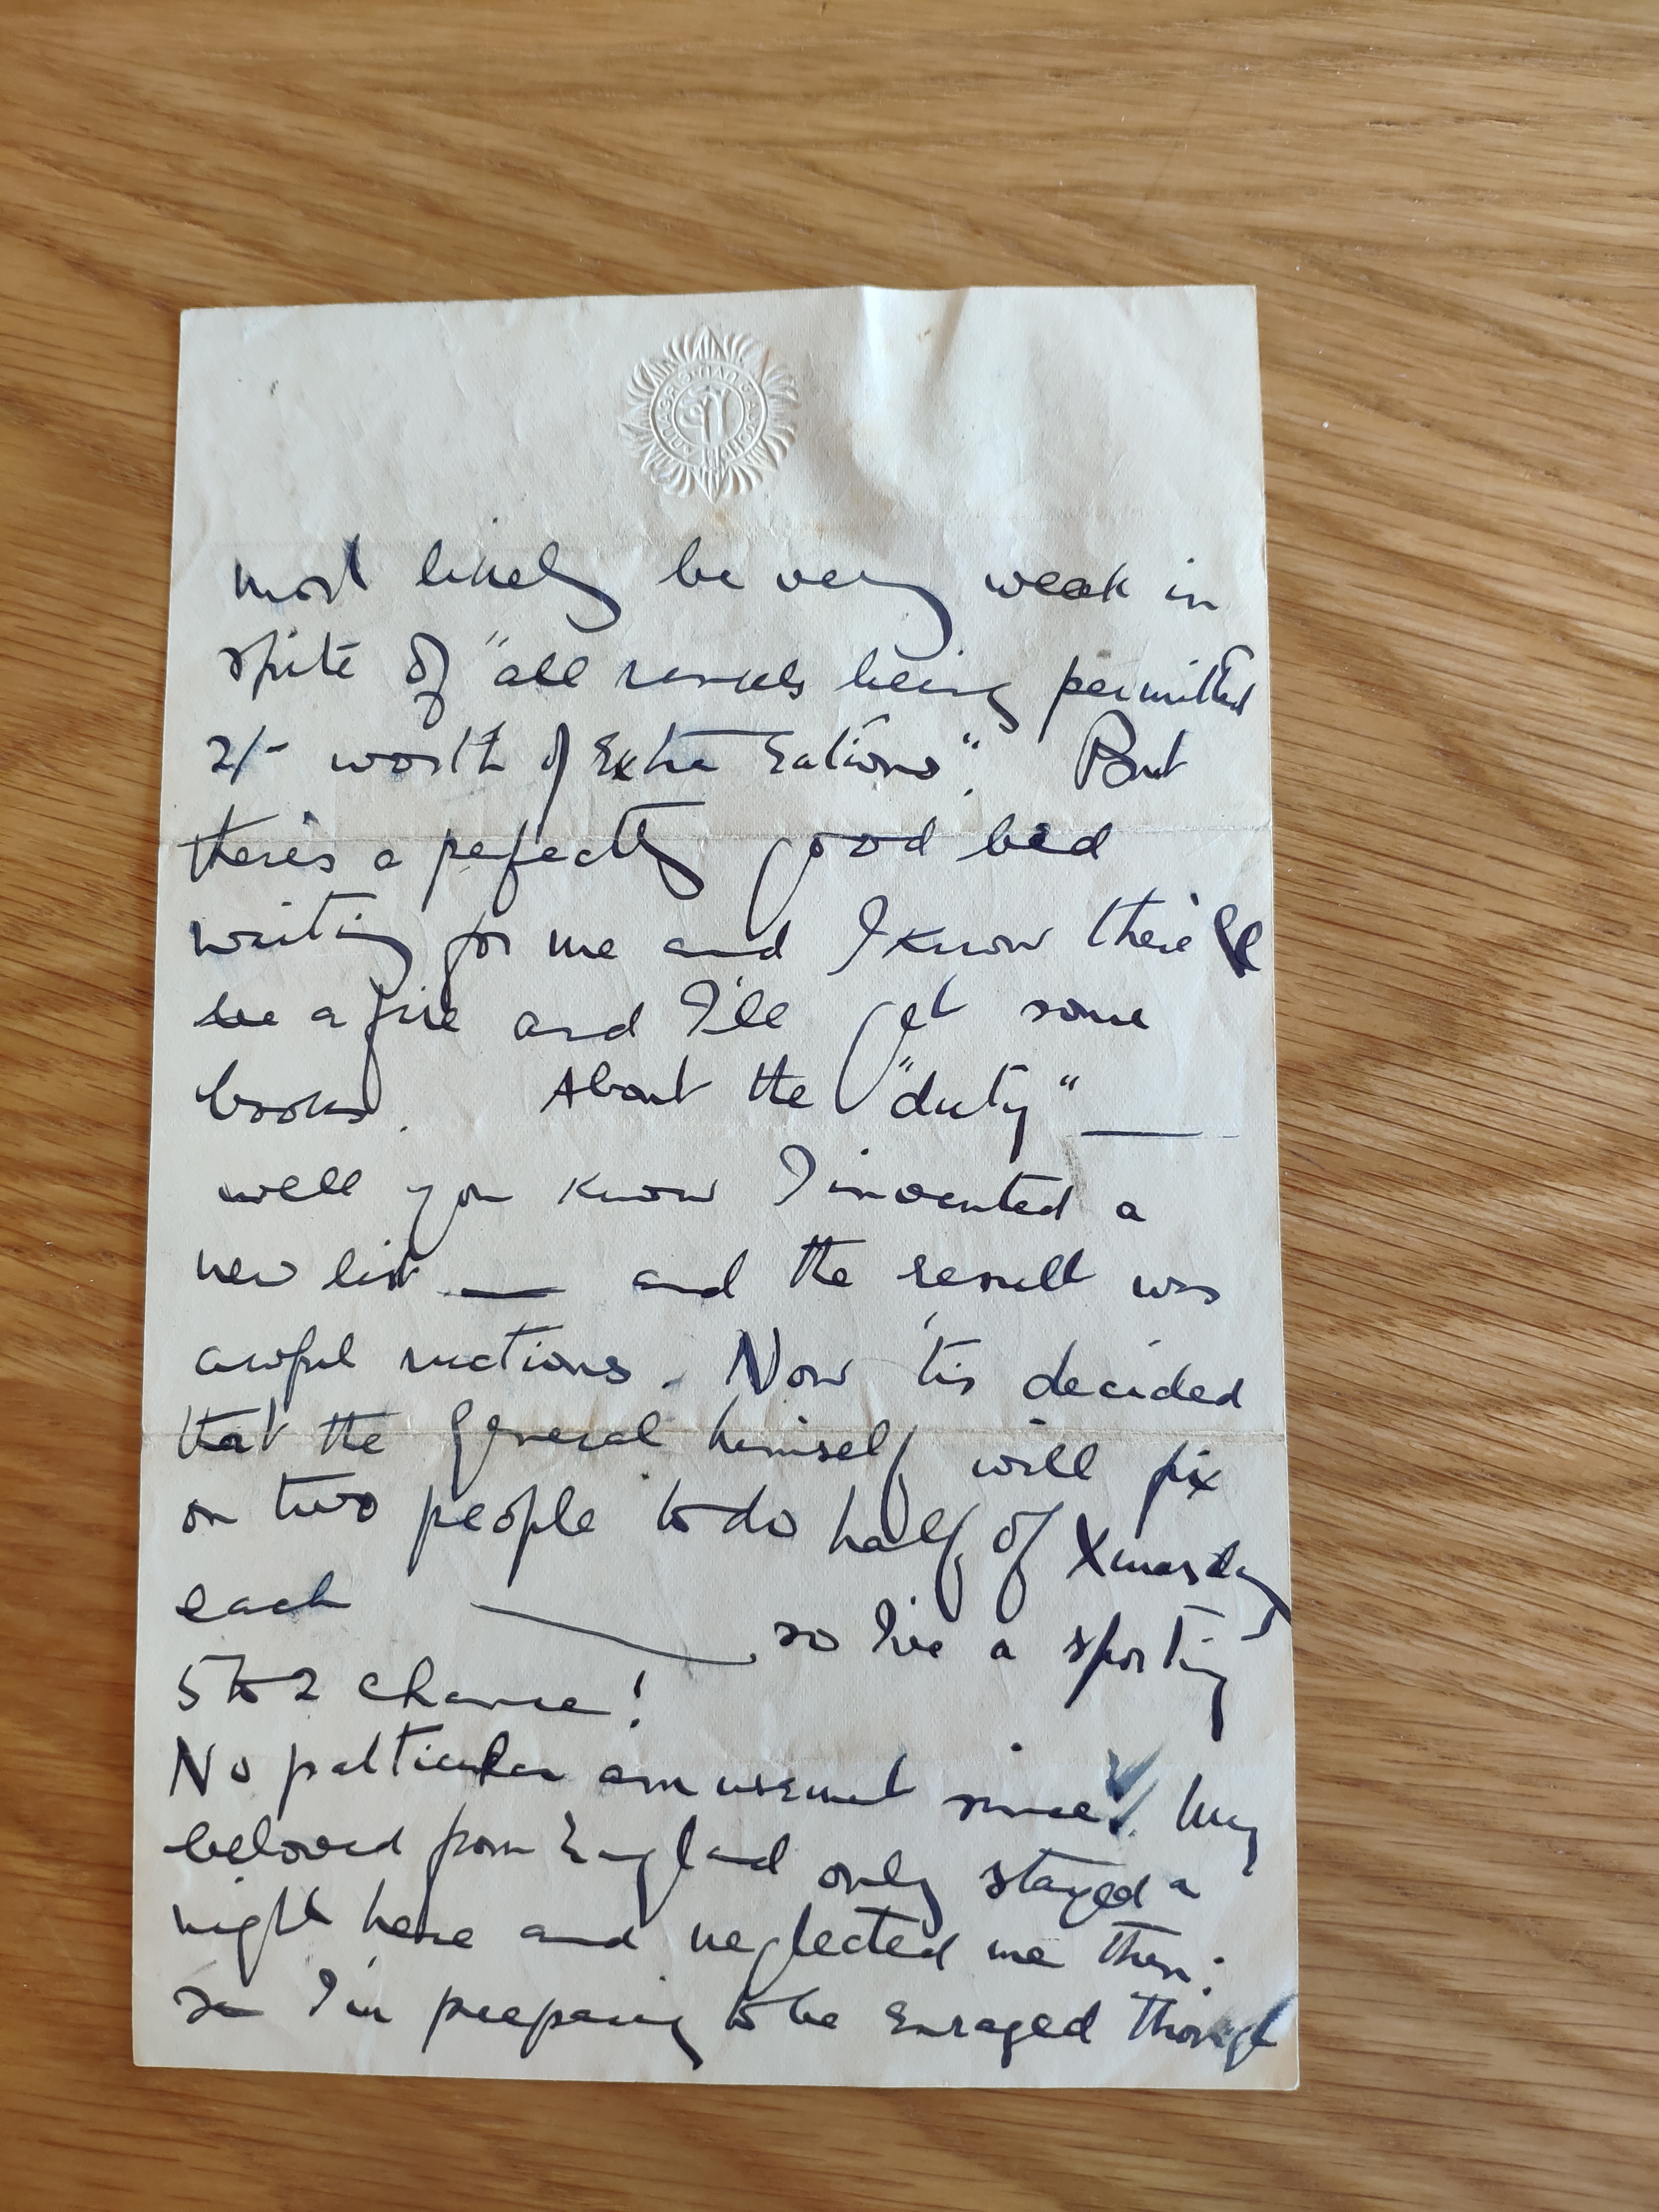 most likely be very weak in
spite of "all ranks being permitted
2/- worth of Extra Rations". But
there's a perfectly good bed
waiting for me and I know there'll
be a fire and I'll get some
books. About the "duty" —
well you know I invented a
new list — and the result was
awful ructions. Now 'tis decided
that the General himself will fix
on two people to do half of Xmas day
each — so I've a sporting
5 to 2 chance!
No particular amusement since. My
beloved from England only stayed a
night here and neglected me then:
so I'm preparing to be enraged though